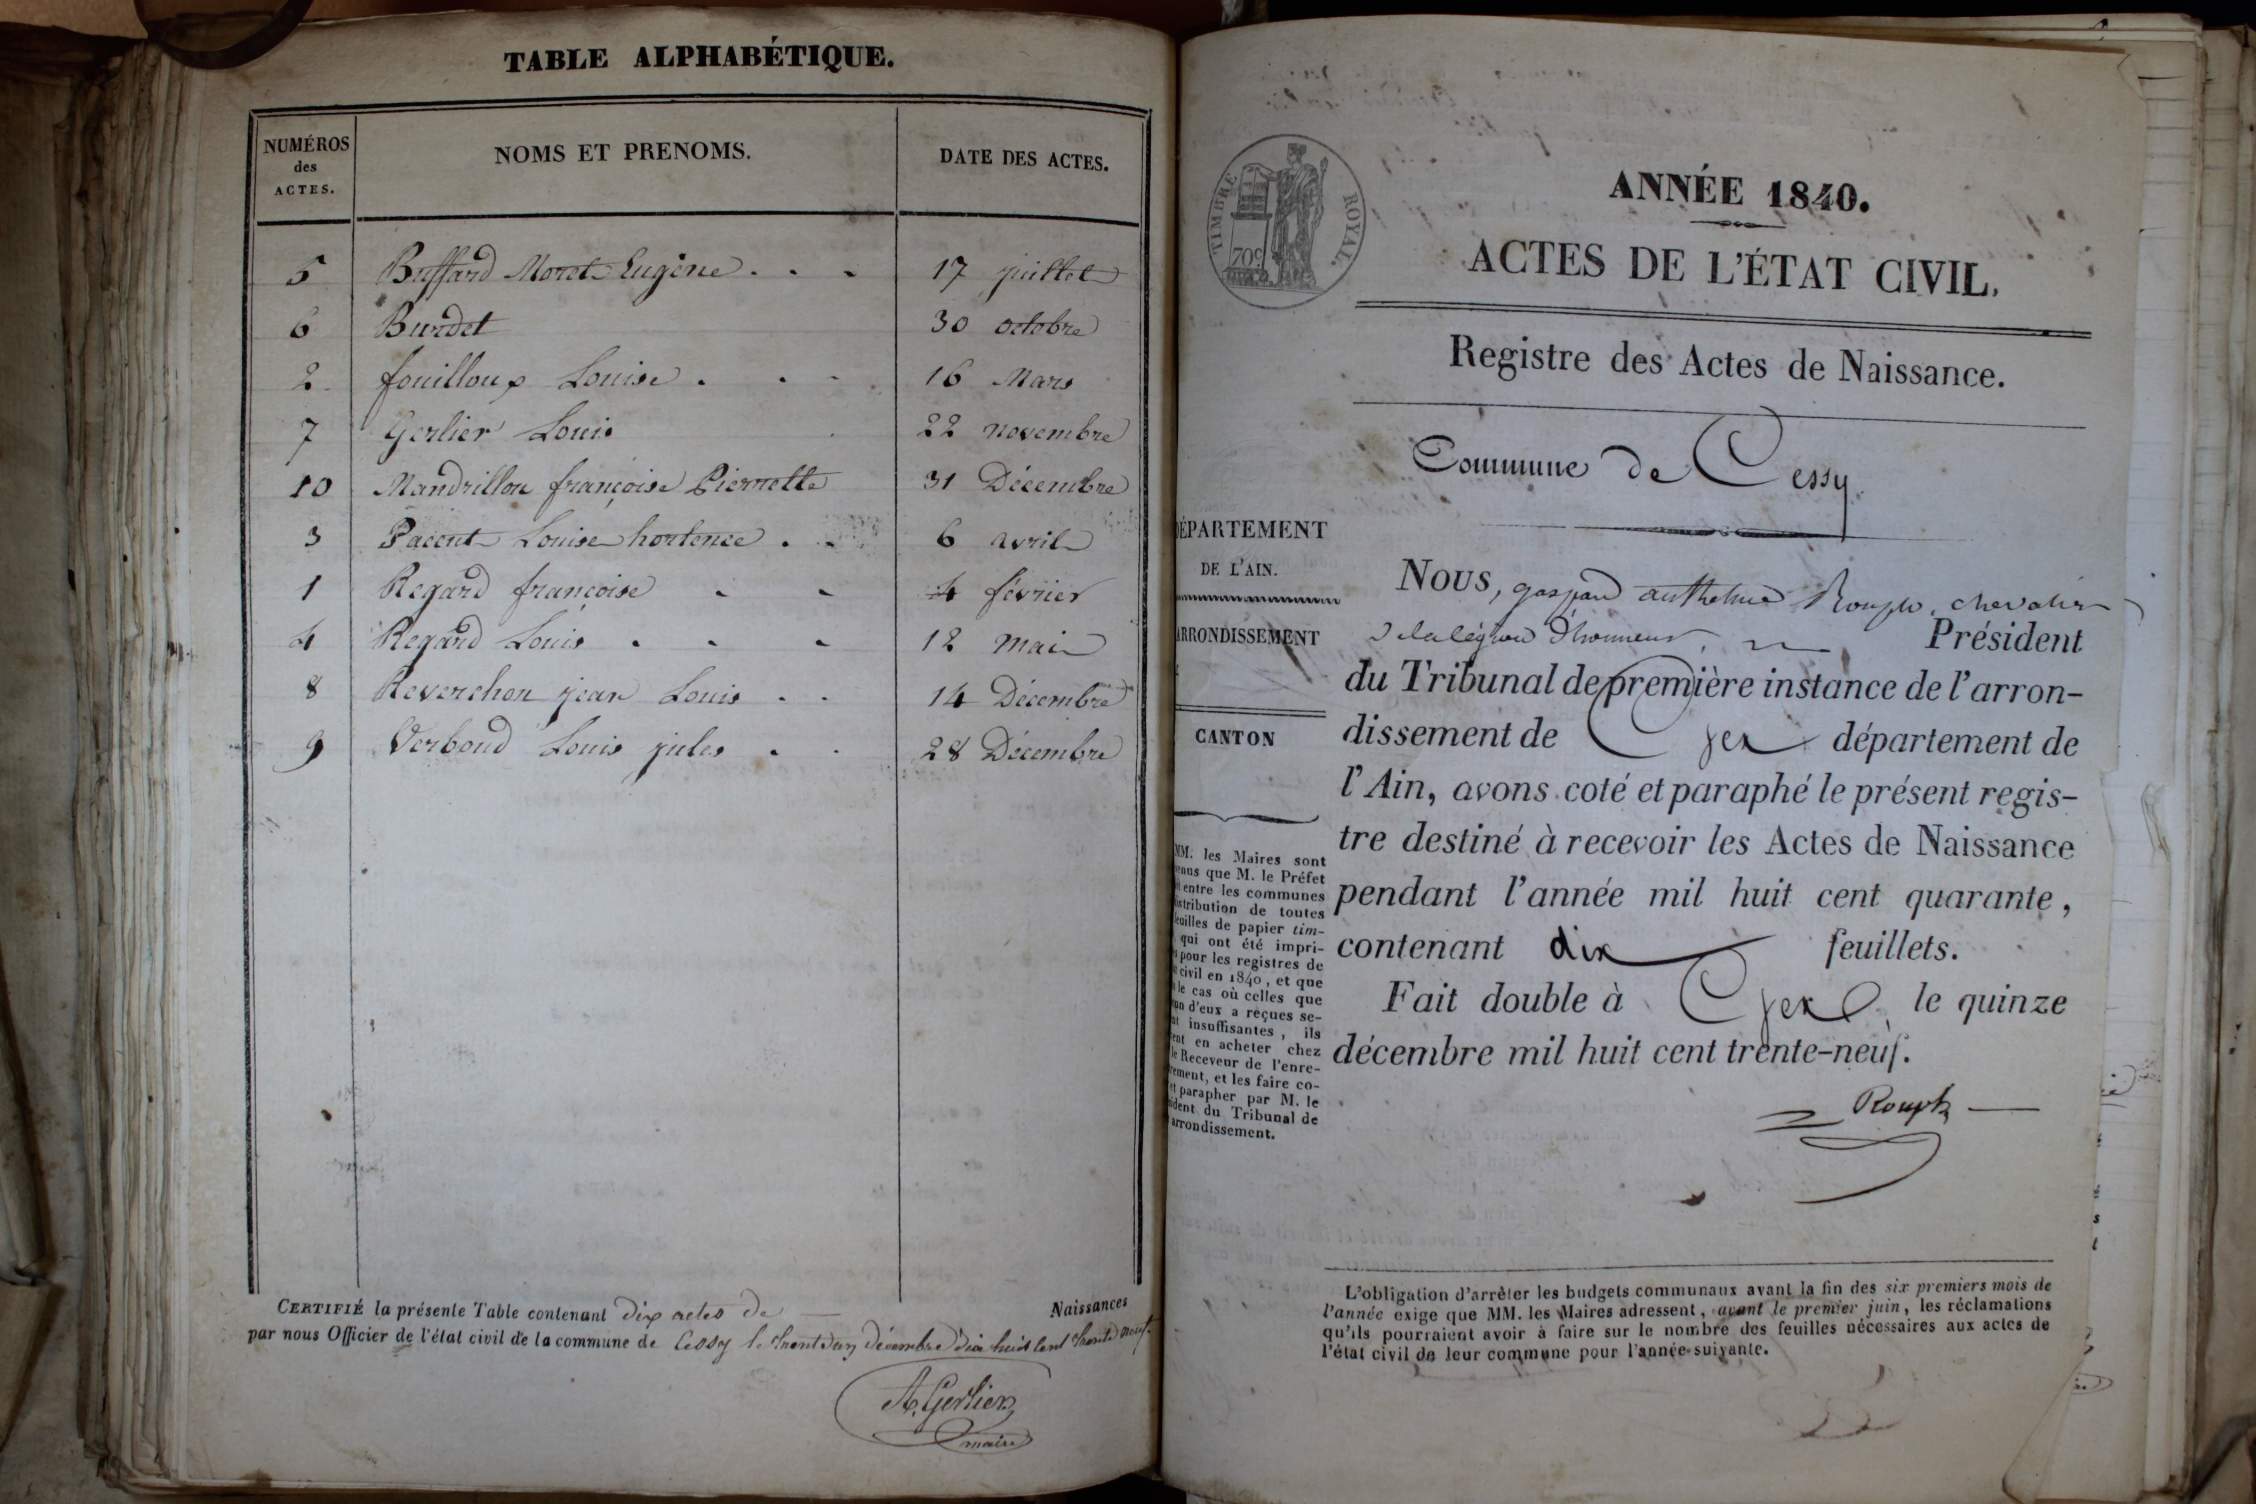 TABLE ALPHABÉTIQUE.
NUMÉROS des ACTES. NOMS ET PRENOMS. DATE DES ACTES.
5 Buffard Moret Eugène . . . 17 juillet
6 Burdet 30 octobre
2 fouilloux Louise . . . 16 Mars
7 Gerlier Louis 22 novembre
10 Mandrillon françoise Pierrette 31 Décembre
3 Pacent Louise hortence . . 6 avril
1 Regard françoise . . 4 février
4 Regard Louis . . . 12 mai
8 Reverchon jean Louis . . 14 Décembre
9 Verboud Louis jules . . 28 Décembre
CERTIFIÉ la présente Table contenant dix actes de Naissances
par nous Officier de l'état civil de la commune de Cessy le trente un Décembre dix huit cent trente neuf.
A. Gerlier
maire
TIMBRE ROYAL.
70c
ANNÉE 1840.
ACTES DE L'ÉTAT CIVIL.
Registre des Actes de Naissance.
Commune de Cessy
DÉPARTEMENT
DE L'AIN.
ARRONDISSEMENT
CANTON
MM. les Maires sont
que M. le Préfet
entre les communes
distribution de toutes
feuilles de papier tim-
qui ont été impri-
pour les registres de
civil en 1840, et que
le cas où celles que
d'eux a reçues se-
insuffisantes, ils
en acheter chez
le Receveur de l'enre-
et les faire co-
parapher par M. le
du Tribunal de
arrondissement.
NOUS, gaspard anthelme Rouph, chevalier
de la légion d'honneur, Président
du Tribunal de première instance de l'arron-
dissement de Gex département de
l'Ain, avons coté et paraphé le présent regis-
tre destiné à recevoir les Actes de Naissance
pendant l'année mil huit cent quarante,
contenant dix feuillets.
Fait double à Gex, le quinze
décembre mil huit cent trente-neuf.
Rouph
L'obligation d'arrêter les budgets communaux avant la fin des six premiers mois de
l'année exige que MM. les Maires adressent, avant le premier juin, les réclamations
qu'ils pourraient avoir à faire sur le nombre des feuilles nécessaires aux actes de
l'état civil de leur commune pour l'année suivante.